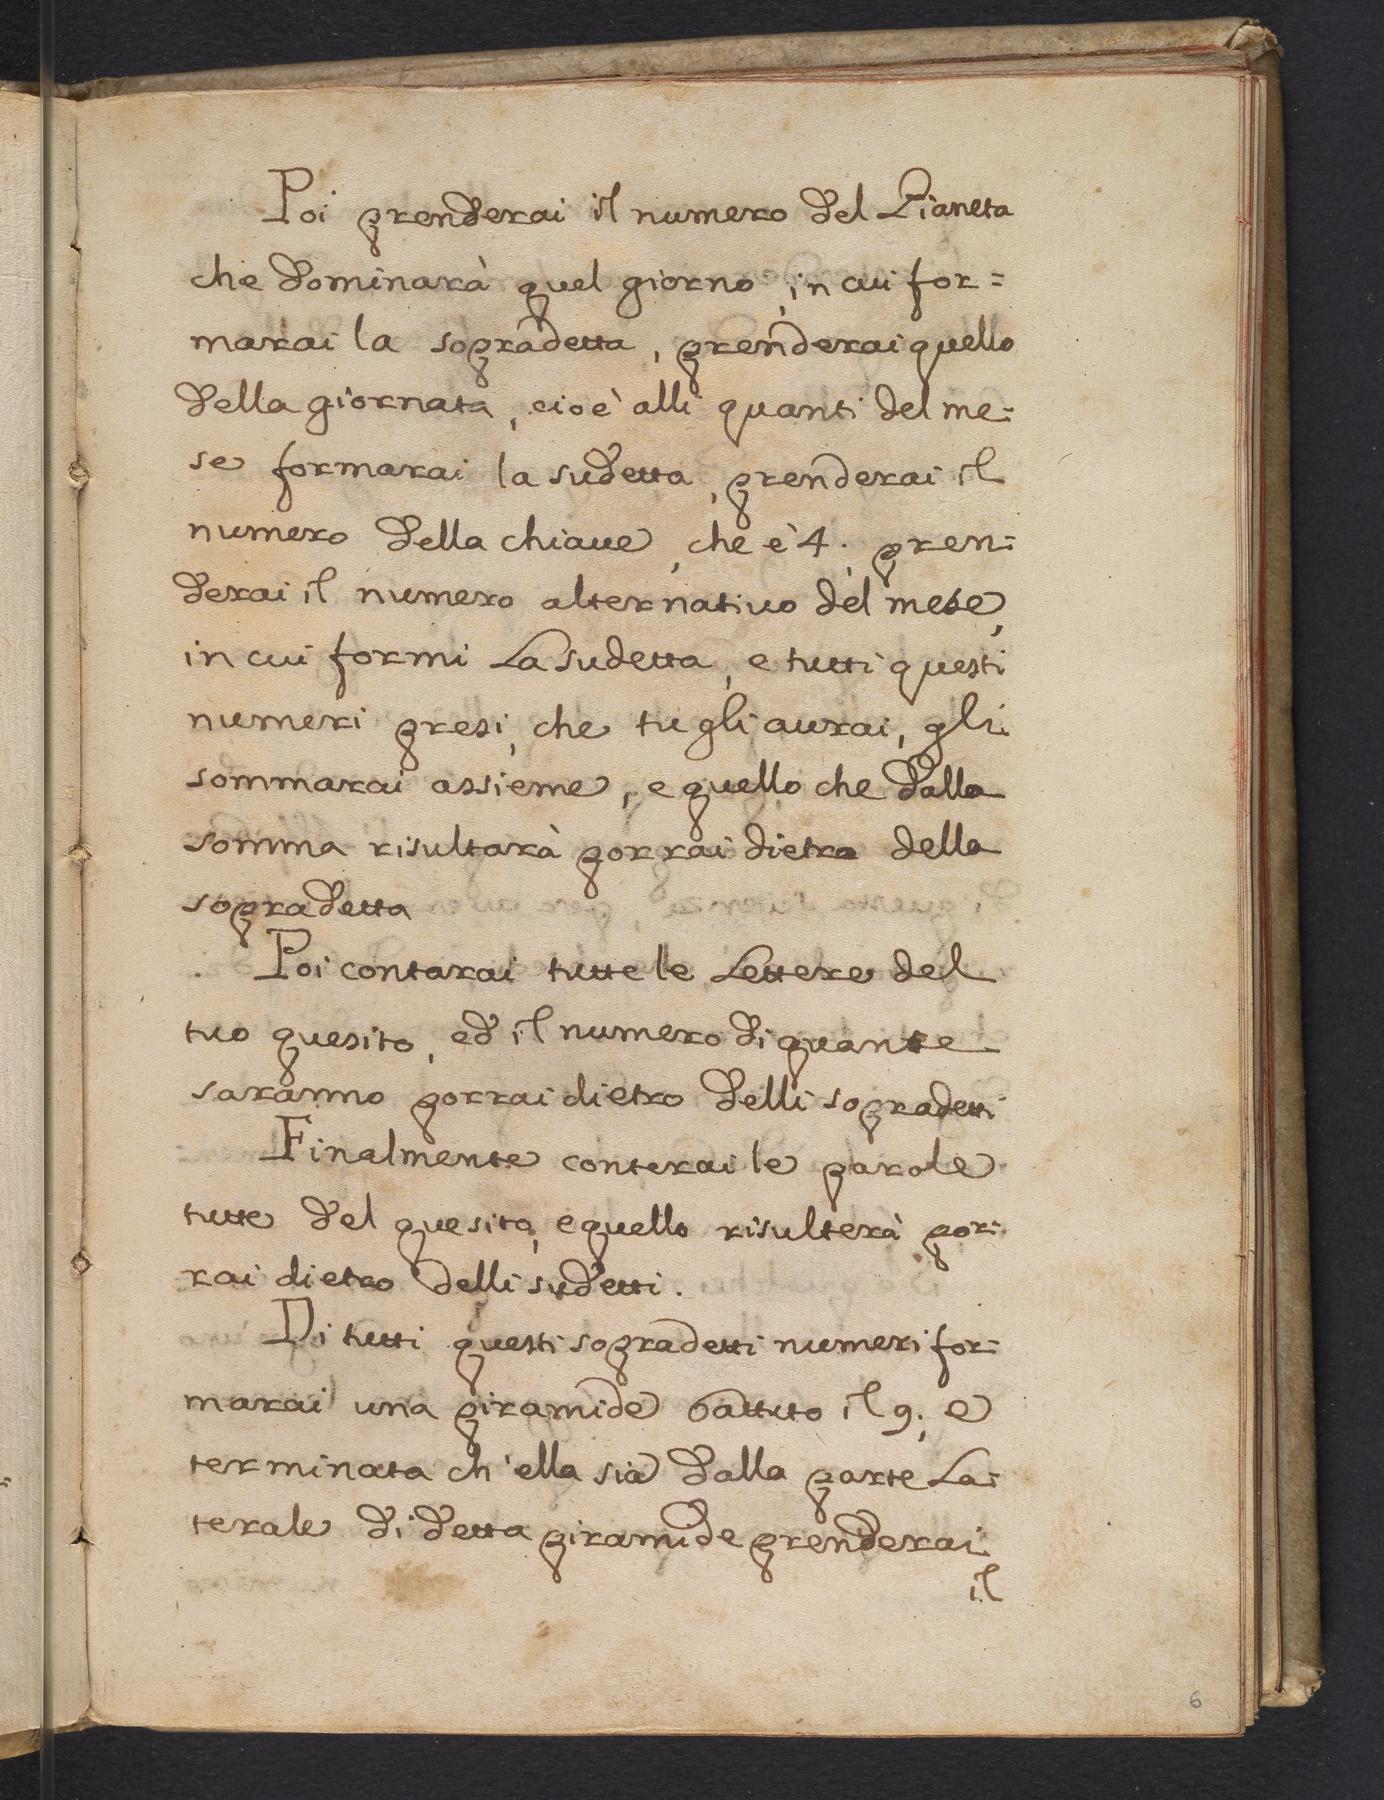 Poi prenderai il numero del Pianeta
che dominarà quel giorno, in cui for=
marai la sopradetta, prenderai quello
della giornata, cioè alli quanti del me=
se formarai la sudetta, prenderai il
numero della chiaue, che è 4., pren=
derai il numero alternatiuo del mese,
in cui formi La sudetta, e tutti questi
numeri presi, che tu gli aurai, gli
sommarai assieme, e quello che dalla
somma risultarà porrai dietro della
sopradetta
Poi contarai tutte le Lettere del
tuo quesito, ed il numero di quante
saranno porrai dietro delli sopradetti
Finalmente conterai le parole
tutte del quesito, e quello risulterà por=
rai dietro delli sudetti.
Di tutti questi sopradetti numeri for=
marai una piramide battuto il 9., e
terminata ch'ella sia dalla parte La=
terale di detta piramide prenderai
il
6